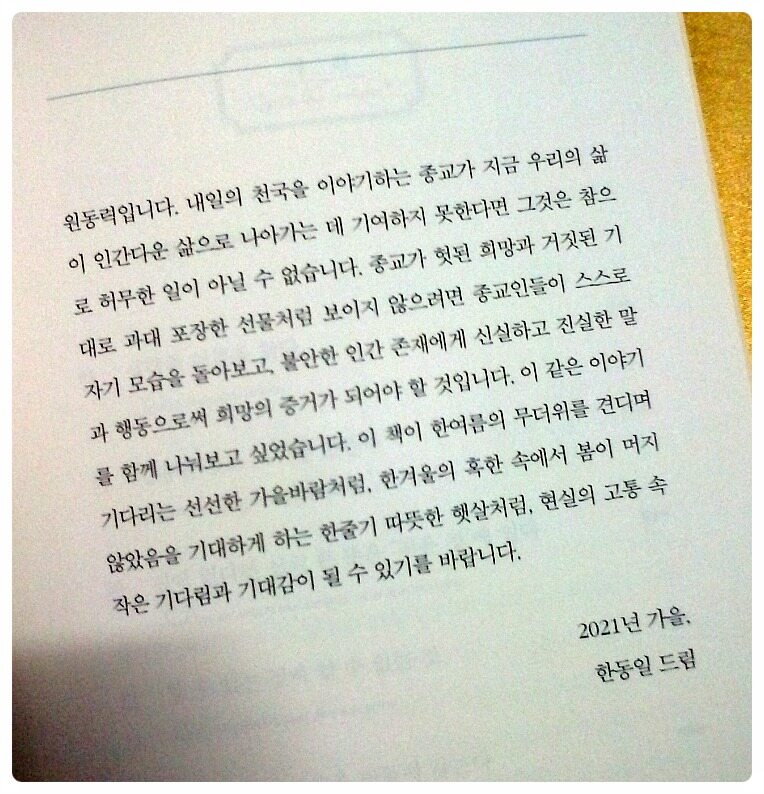 원동력입니다. 내일의 천국을 이야기하는 종교가 지금 우리의 삶
이 인간다운 삶으로 나아가는 데 기여하지 못한다면 그것은 참으
로 허무한 일이 아닐 수 없습니다. 종교가 헛된 희망과 거짓된 기
대로 과대 포장한 선물처럼 보이지 않으려면 종교인들이 스스로
자기 모습을 돌아보고, 불안한 인간 존재에게 신실하고 진실한 말
과 행동으로써 희망의 증거가 되어야 할 것입니다. 이 같은 이야기
를 함께 나눠보고 싶었습니다. 이 책이 한여름의 무더위를 견디며
기다리는 선선한 가을바람처럼, 한겨울의 혹한 속에서 봄이 머지
않았음을 기대하게 하는 한줄기 따뜻한 햇살처럼, 현실의 고통 속
작은 기다림과 기대감이 될 수 있기를 바랍니다.
2021년 가을,
한동일 드림